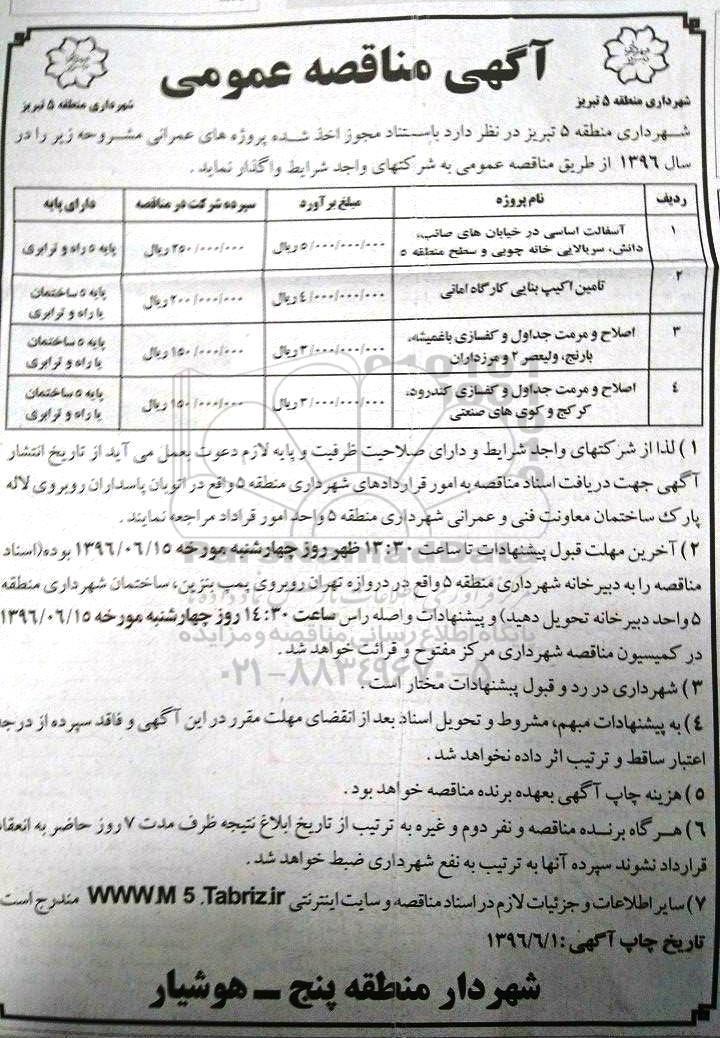 آگهی مناقصه عمومی
شهرداری منطقه ۵ تبریز
شهرداری منطقه ۵ تبریز
شهرداری منطقه ۵ تبریز در نظر دارد باستناد مجوز اخذ شده پروژه های عمرانی مشروحه زیر را در
سال ۱۳۹۶ از طریق مناقصه عمومی به شرکتهای واجد شرایط واگذار نماید .
ردیف نام پروژه مبلغ برآورد سپرده شرکت در مناقصه دارای پایه
۱ آسفالت اساسی در خیابان های صائب، ۵/۰۰۰/۰۰۰/۰۰۰ ریال ۲۵۰/۰۰۰/۰۰۰ ریال پایه ۵ راه و ترابری
دانش، سربالایی خانه چوبی و سطح منطقه ۵
۲ تامین اکیپ بنایی کارگاه امانی ۴/۰۰۰/۰۰۰/۰۰۰ ریال ۲۰۰/۰۰۰/۰۰۰ ریال پایه ۵ ساختمان
یا راه و ترابری
۳ اصلاح و مرمت جداول و کفسازی باغمیشه، ۳/۰۰۰/۰۰۰/۰۰۰ ریال ۱۵۰/۰۰۰/۰۰۰ ریال پایه ۵ ساختمان
بارنج، ولیعصر ۲ و مرزداران یا راه و ترابری
۴ اصلاح و مرمت جداول و کفسازی کندرود، ۳/۰۰۰/۰۰۰/۰۰۰ ریال ۱۵۰/۰۰۰/۰۰۰ ریال پایه ۵ ساختمان
کرکج و کوی های صنعتی یا راه و ترابری
۱) لذا از شرکتهای واجد شرایط و دارای صلاحیت ظرفیت و پایه لازم دعوت بعمل می آید از تاریخ انتشار
آگهی جهت دریافت اسناد مناقصه به امور قراردادهای شهرداری منطقه ۵ واقع در اتوبان پاسداران روبروی لاله
پارک ساختمان معاونت فنی و عمرانی شهرداری منطقه ۵ واحد امور قراداد مراجعه نمایند .
۲) آخرین مهلت قبول پیشنهادات تا ساعت ۱۳:۳۰ ظهر روز چهارشنبه مورخه ۱۳۹۶/۰۶/۱۵ بوده(اسناد
مناقصه را به دبیرخانه شهرداری منطقه ۵ واقع در دروازه تهران روبروی پمپ بنزین، ساختمان شهرداری منطقه
۵ واحد دبیرخانه تحویل دهید) و پیشنهادات واصله راس ساعت ۱۴:۳۰ روز چهارشنبه مورخه ۱۳۹۶/۰۶/۱۵
در کمیسیون مناقصه شهرداری مرکز مفتوح و قرائت خواهد شد .
۳) شهرداری در رد و قبول پیشنهادات مختار است .
۴) به پیشنهادات مبهم، مشروط و تحویل اسناد بعد از انقضای مهلت مقرر در این آگهی و فاقد سپرده از درجه
اعتبار ساقط و ترتیب اثر داده نخواهد شد .
۵) هزینه چاپ آگهی بعهده برنده مناقصه خواهد بود .
۶) هرگاه برنده مناقصه و نفر دوم و غیره به ترتیب از تاریخ ابلاغ نتیجه ظرف مدت ۷ روز حاضر به انعقاد
قرارداد نشوند سپرده آنها به ترتیب به نفع شهرداری ضبط خواهد شد .
۷) سایر اطلاعات و جزئیات لازم در اسناد مناقصه و سایت اینترنتی WWW.M 5 .Tabriz.ir مندرج است
تاریخ چاپ آگهی :۱۳۹۶/۶/۱
شهردار منطقه پنج ــ هوشیار
ParsNamadData
پایگاه اطلاع رسانی مناقصه و مزایده